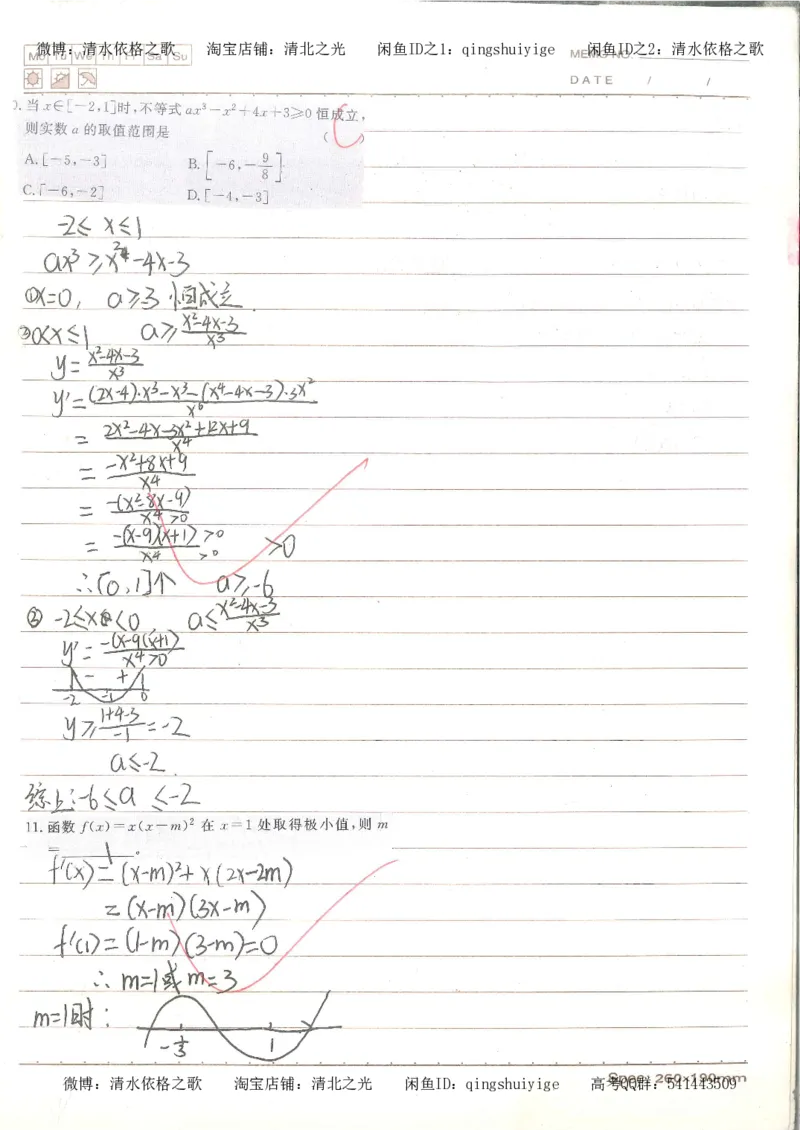 微博：清水依格之歌 淘宝店铺：清北之光 闲鱼ID之1：qingshuiyige 闲鱼ID之2：清水依格之歌
Mo Tu We Th Fr Sa Su
MEMO NO.
DATE / /
0.当x∈[-2,1]时,不等式ax³-x²+4x+3≥0恒成立,
则实数a的取值范围是 ( C )
A.[-5,-3] B.[-6,-9/8]
C.[-6,-2] D.[-4,-3]
-2≤ x≤1
ax³≥x²-4x-3
①x=0, a≥-3 恒成立
③0<x≤1 a≥(x²-4x-3)/x³
y=(x²-4x-3)/x³
y'=((2x-4)·x³-x³-(x⁴-4x-3)·3x²)/x⁶
=(2x²-4x-3x²+12x+9)/x⁴
=(-x²+8x+9)/x⁴
=-(x²-8x-9)/x⁴>0
=-(x-9)(x+1)>0/x⁴>0 >0
∴[0,1]↑ a≥-6
② -2≤x<0 a≤(x²-4x-3)/x³
y'=-(x-9)(x+1)/x⁴>0
- +
-2 -1 0
y≥(1+4-3)/-1=-2
a≤-2
综上:-6≤a ≤-2
11.函数f(x)=x(x-m)²在x=1处取得极小值,则m
=1.
f'(x)=(x-m)²+x(2x-2m)
=(x-m)(3x-m)
f'(1)=(1-m)(3-m)=0
∴m=1或m=3
m=1时:
-1/3 1
微博：清水依格之歌 淘宝店铺：清北之光 闲鱼ID：qingshuiyige 高考QQ群：541443509
Spec: 260×190mm